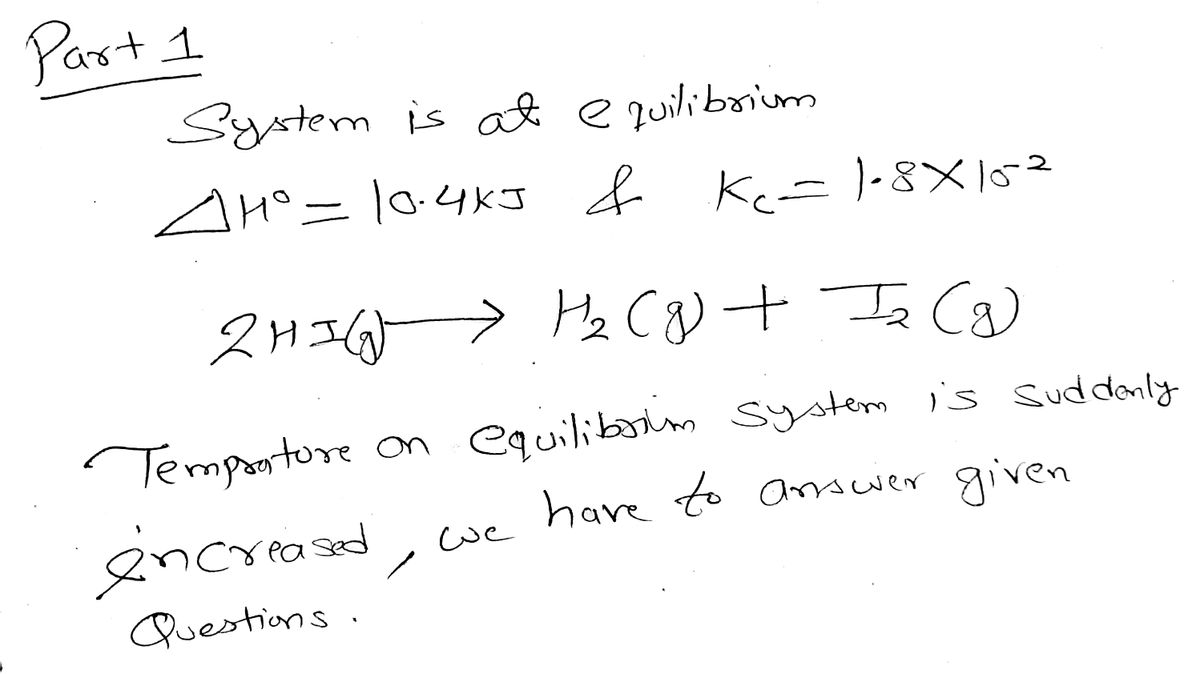 Part 1
System is at equilibrium
ΔH° = 10.4KJ & Kc = 1.8×10⁻²
2HI(g) → H₂(g) + I₂(g)
Temprature on equilibrium system is suddenly
increased, we have to answer given
Questions.